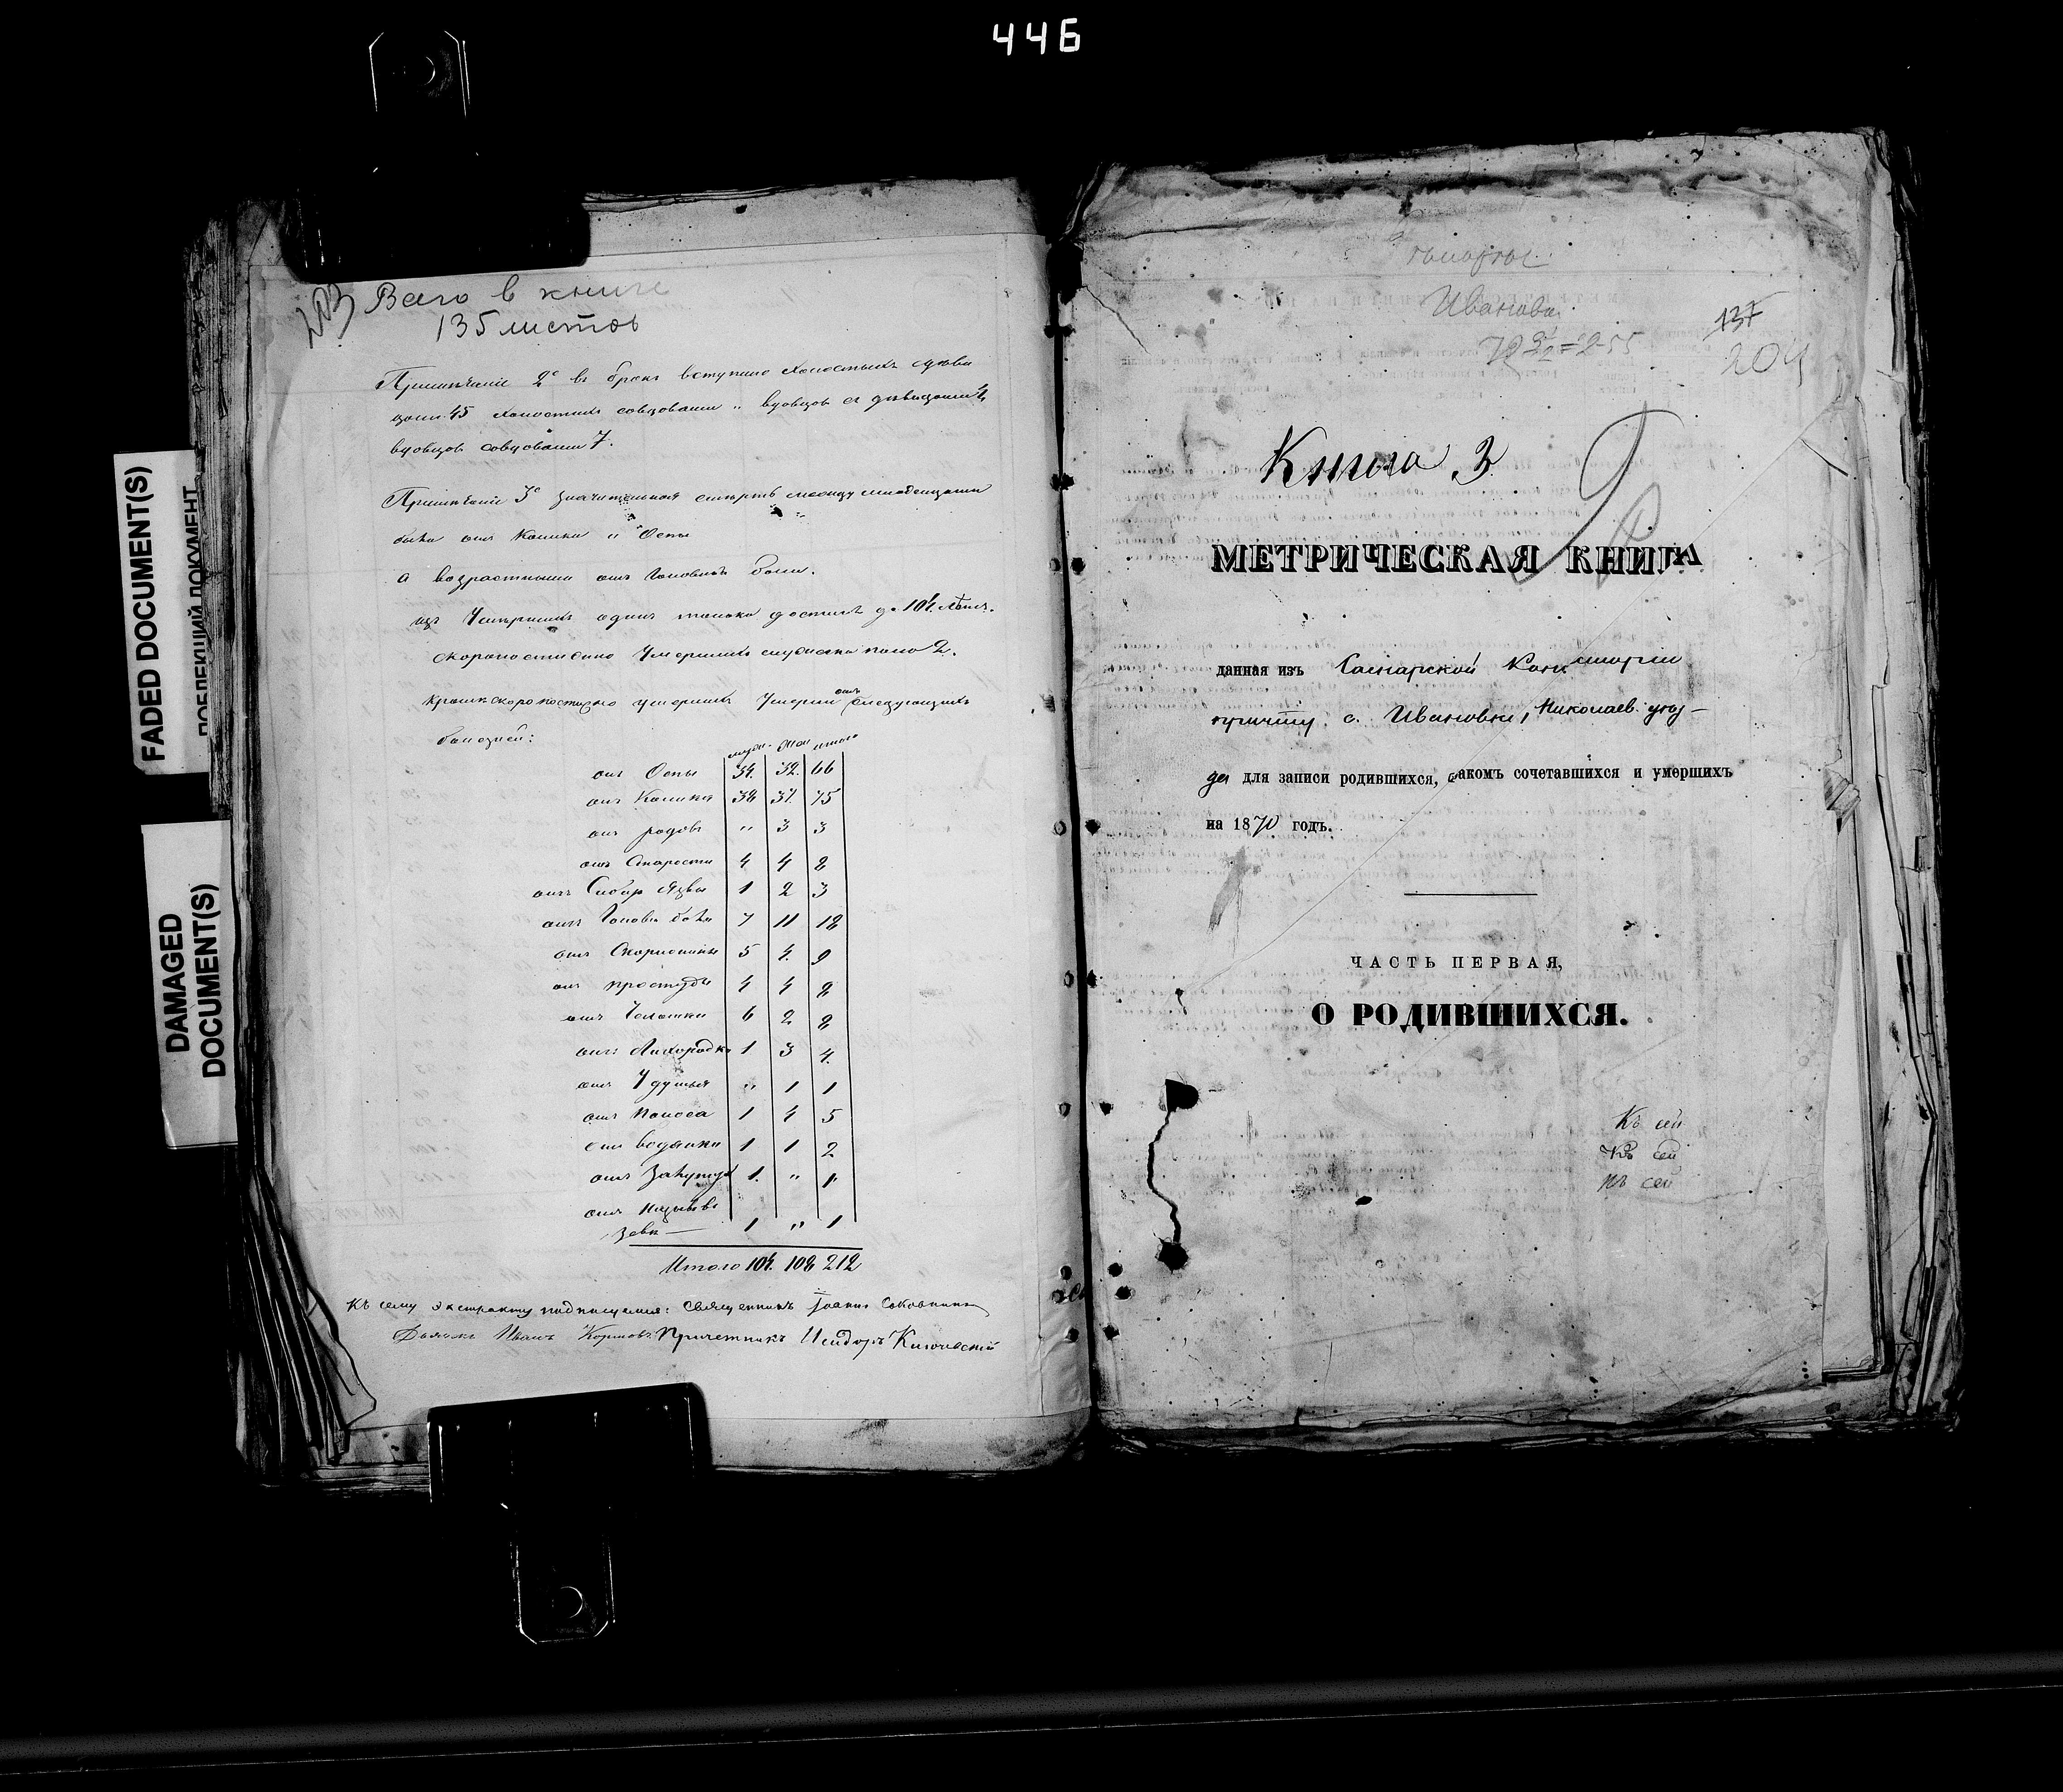 446
FADED DOCUMENT(S)
ДОКУМЕНТ
DAMAGED
DOCUMENT(S)
203 Всего в книге
135 листов
Примѣчаніе 2е въ бракъ вступило холостыхъ съ дѣви
цами 45 холостыхъ совдовами „ вдовцовъ съ дѣвицами 4,
вдовцовъ совдовами 7.
Примѣчаніе 3е значительная смерть между младенцами
была отъ Колики и Оспы
а возрастными отъ Головной боли.
изъ Умершихъ одинъ только достигъ до 104. лѣтъ.
скоропостижно Умершихъ мужска пола 2.
Кромѣ скоропостижно умершихъ Умерли отъ слѣдующихъ
болѣзней:
муж. жен итого
отъ Оспы 34. 32. 66
отъ Колики 38 37. 75
отъ родовъ „ 3 3
отъ Старости 4 4 8
отъ Сибир Язвы 1 2 3
отъ Головн боли 7 11 18
отъ 5 4. 9
отъ простуды 4 4 8
отъ Чахотки 6 2 8
отъ Лихорадки 1 3 4.
отъ Удушья „ 1 1
отъ Поноса 1 4 5
отъ водянки 1 1 2
отъ 1. „ 1
отъ
1 „ 1
Итого 104. 108 212
Къ сему экстракту подписались: Священникъ Іоаннъ
Дьяконъ Иванъ Причетникъ Исидоръ Ключевскій
Ивановка
137
204
Книга 3
МЕТРИЧЕСКАЯ КНИГА
данная изъ Самарской Консисторіи
причту с. Ивановки, Николаев. уѣз-
да для записи родившихся, бракомъ сочетавшихся и умершихъ
на 1870 годъ.
ЧАСТЬ ПЕРВАЯ,
О РОДИВШИХСЯ.
Къ сей
Къ сей
Къ сей